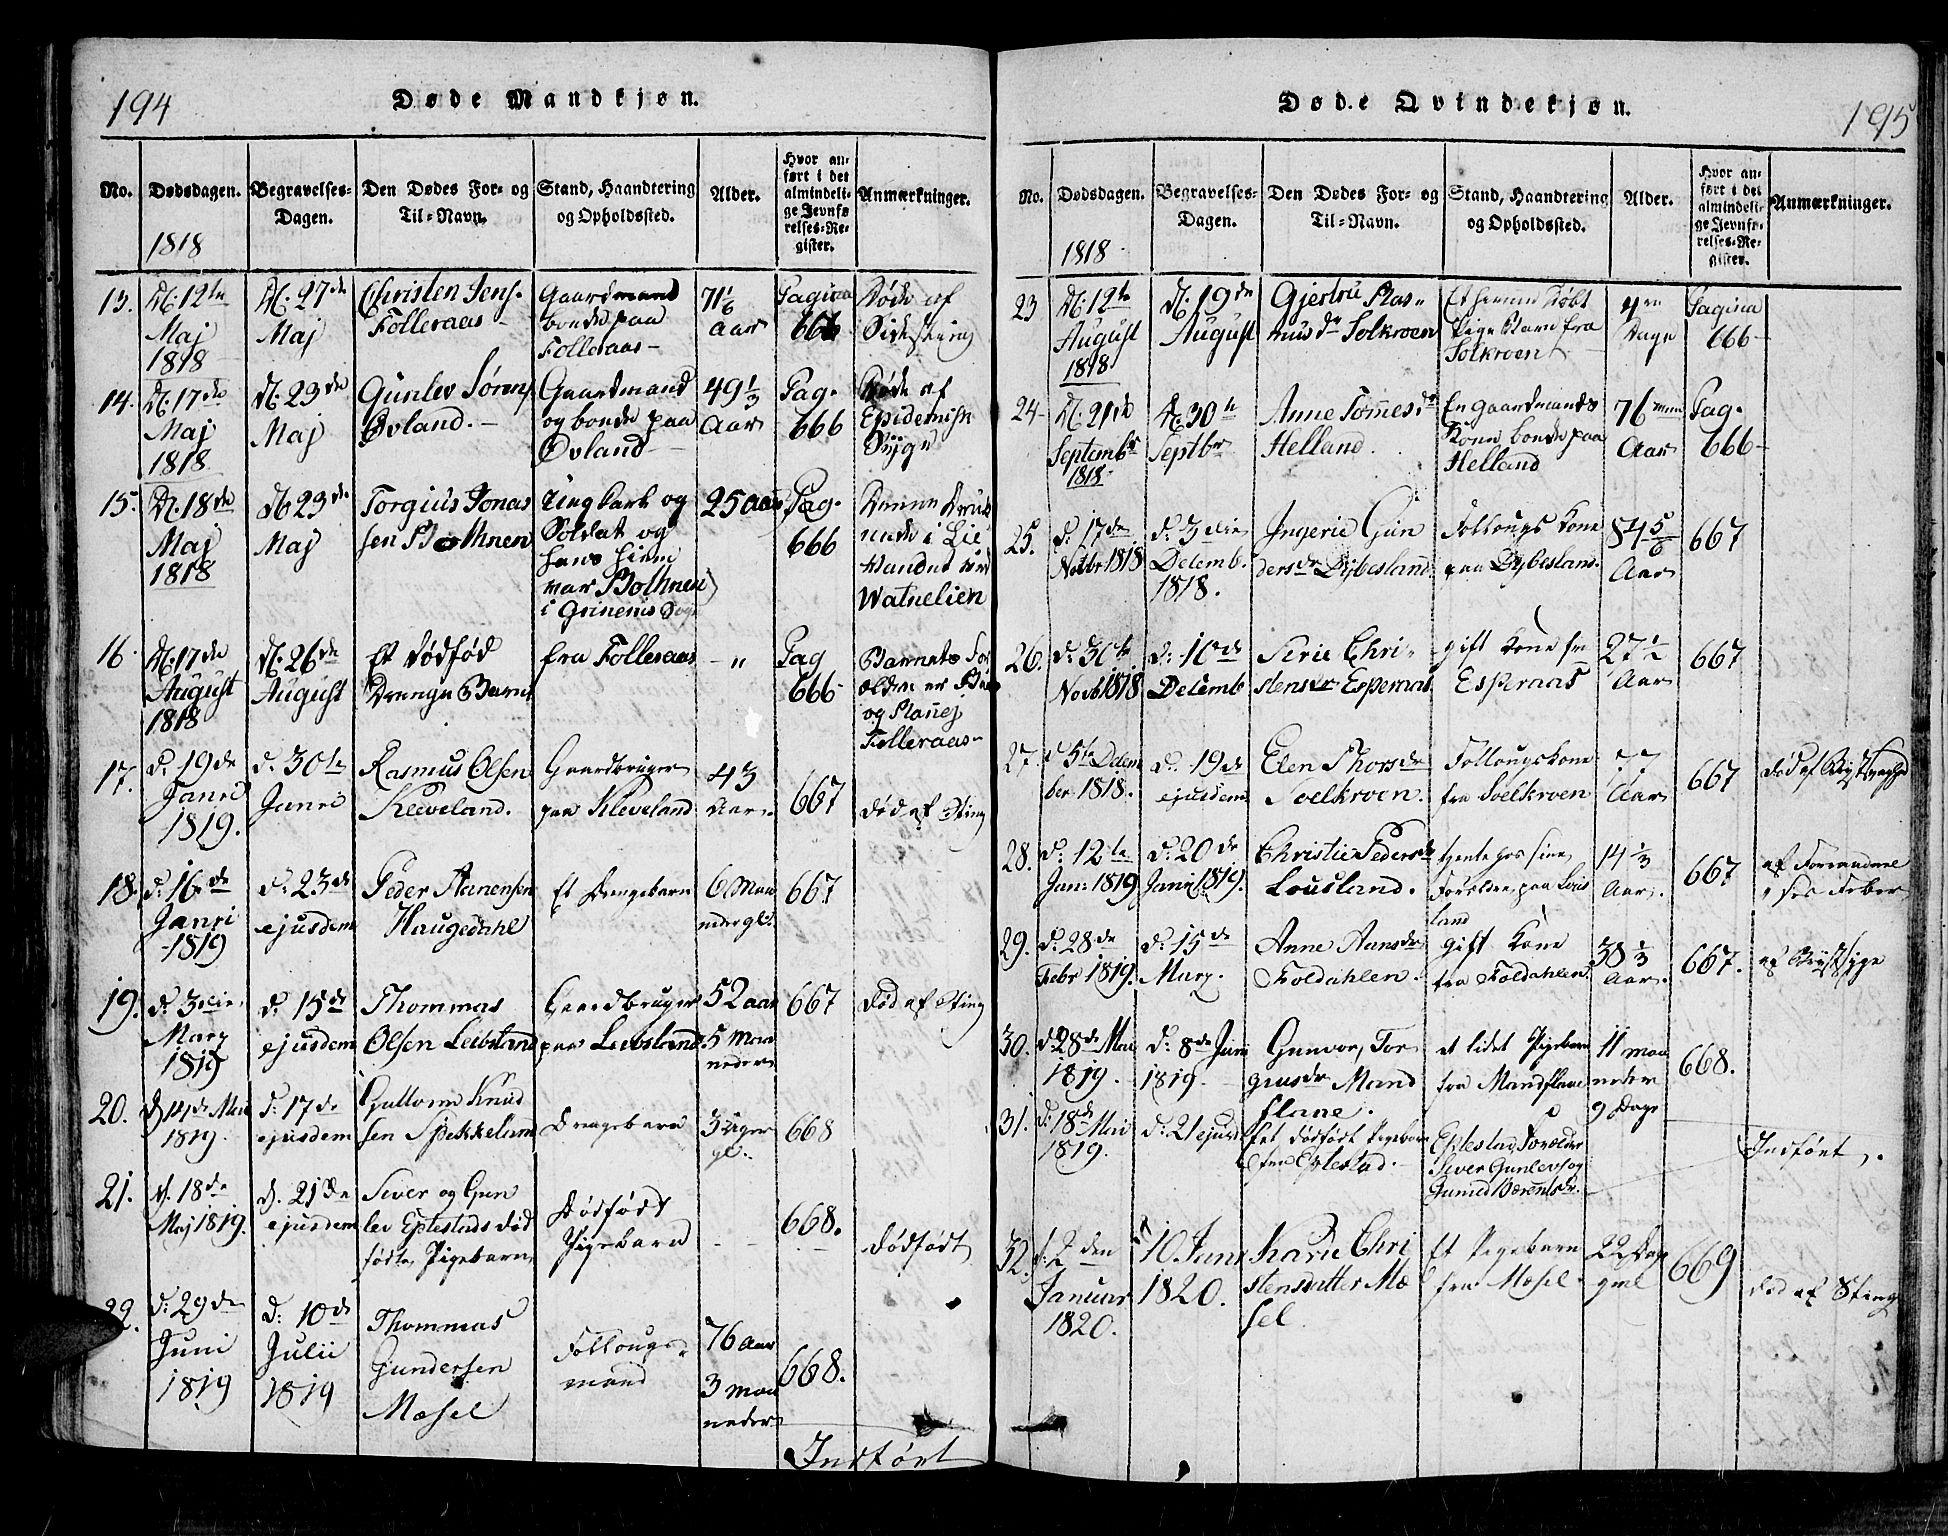 194
Døde Mandkjøn.
No.
Dødsdagen.
1818
Begravelses-
Dagen.
Den Dødes For- og
Til-Navn.
Stand, Haandtering
og Opholdssted.
Alder.
Hvor an-
ført i det
almindeli-
ge Jevnfø
relses-Re-
gister.
Anmærkninger.
13.
D. 12te
Maj
1818
D. 27de
Maj
Christen Jens-
Folleraas
Gaardmand
bonde paa
Folleraas
71 1/6
Aar
Pagina
666
Døde af
14.
D. 17de
Maj
1818
D. 23de
Maj
Gunlev Søren
Øvland.
Gaardmand
og bonde paa
Øvland
49 1/3
Aar
Pag.
666
Døde af
Epidemisk
Syge
15.
D. 18de
Maj
1818
D. 23de
Maj
Torgius Jonas
sen Bothnen
Ung Karl og
Soldat og
hans hiem
var Bothnen
i Grinems Sogn
25 aar
Pag.
666
Denne
i
Vandet ved
Watnelien
16
D. 17de
August
1818
D. 26de
August
Et dødfød
Drenge Barn
fra Folleraas
"
Pag
666
Barnets For
ældre er
og
Folleraas
17.
D. 19de
Janri
1819.
D. 30te
Janri
Rasmus Olsen
Kleveland.
Gaardbruger
paa Kleveland
43
Aar
667
død af Sting
18.
D. 16de
Janri
1819
D. 23de
ejusdem
Peder Aanensen
Haugedahl
Et Drengebarn
6 Maa
neder gl.
667
19.
D. 3die
Marz
1819
D. 15de
ejusdem
Thommas
Olsen Leibsland
Gaardbruger
paa Leibsland
52 aar
5 Maa
neder
667
død af Sting
20.
D. 14de Mai
1819.
D. 17de
ejusdem
Guttorm Knud
sen Spekkeland
Drengebarn
3 Uger
gl.
668
21.
D. 18de
Maj 1819.
D. 21de
ejusdem
Siver og Gun
lev Eptestads død
fødte Pigebarn
Dødfødt
Pigebarn
668.
dødfødt
22.
D. 29de
Juni
1819
D. 10de
Julii
1819
Thommas
Gundersen
Mæsel
Follougs-
mand
76 Aar
3 maa
neder
668.
Indført
Døde Qvindekjøn.
195
No.
Dødsdagen.
1818
Begravelses-
Dagen.
Den Dødes For- og
Til-Navn.
Stand, Haandtering
og Opholdssted.
Alder.
Hvor an-
ført i det
almindeli-
ge Jevnfø-
relses-Re-
gister.
Anmærkninger.
23
D. 12te
August
1818
D. 19de
August
Gjertru Ras-
musdr Solkroen
Et hiemme døbt
Pige Barn fra
Solkroen
Dage
Pagina
666
24
D. 21de
Septembr
1818
D. 30te
Septbr
Anne Tømesdr
Helland.
En Gaardmands
Kone, bonde paa
Helland
76
Aar
Pag.
666
25.
D. 17de
Novbr 1818
D. 3die
Decemb.
1818.
Ingerie Gun
dersdr Dybesland.
Follougs Kone
paa Dybesland.
84 5/6
Aar
667
26.
D. 30te
Novb 1818
D. 10de
Decemb
Serie Chri
stensdr Esperaas
gift Kone fra
Esperaas
27 1/2
Aar
667
27.
D. 5te Decem
ber 1818.
D. 19de
ejusdem
Elen Thorsdr
Soelkroen.
Follougskone
fra Soelkroen
77
Aar
667
død af Brystsyge
28.
D. 12te
Jan: 1819
D. 20de
Janri 1819.
Christie Pedersdr
Lousland.
hos sine
Forældre paa Lous
land
14 1/3
Aar.
667
af
Feber
29.
D. 28de
Febr 1819.
D. 15de
Marz.
Anne Aansdr
Foldahlen.
gift Kone
fra Foldahlen
38 1/3
Aar.
667.
af Brystsyge
30.
D. 28de Mai
1819.
D. 8de Juni
1819.
Gunvor, Tor
griusdr Mand
flane.
et lidet Pigebarn
fra Mandflane
11 maa
neder
9 Dage
668.
31.
D. 18de Mai
1819.
D. 21 ejusd
Et dødfødt Pigebarn
fra Eptestad.
Eptestad, Forældre
Siver Gunlevs og
Gunild Børentsdr.
Indført.
32.
D. 2den
Januar
1820.
D. 10 Janr
1820.
Karie Chri
stensdatter Mæ
sel.
Et Pigebarn
fra Mæsel
22 Dage
gml
669
død af Sting